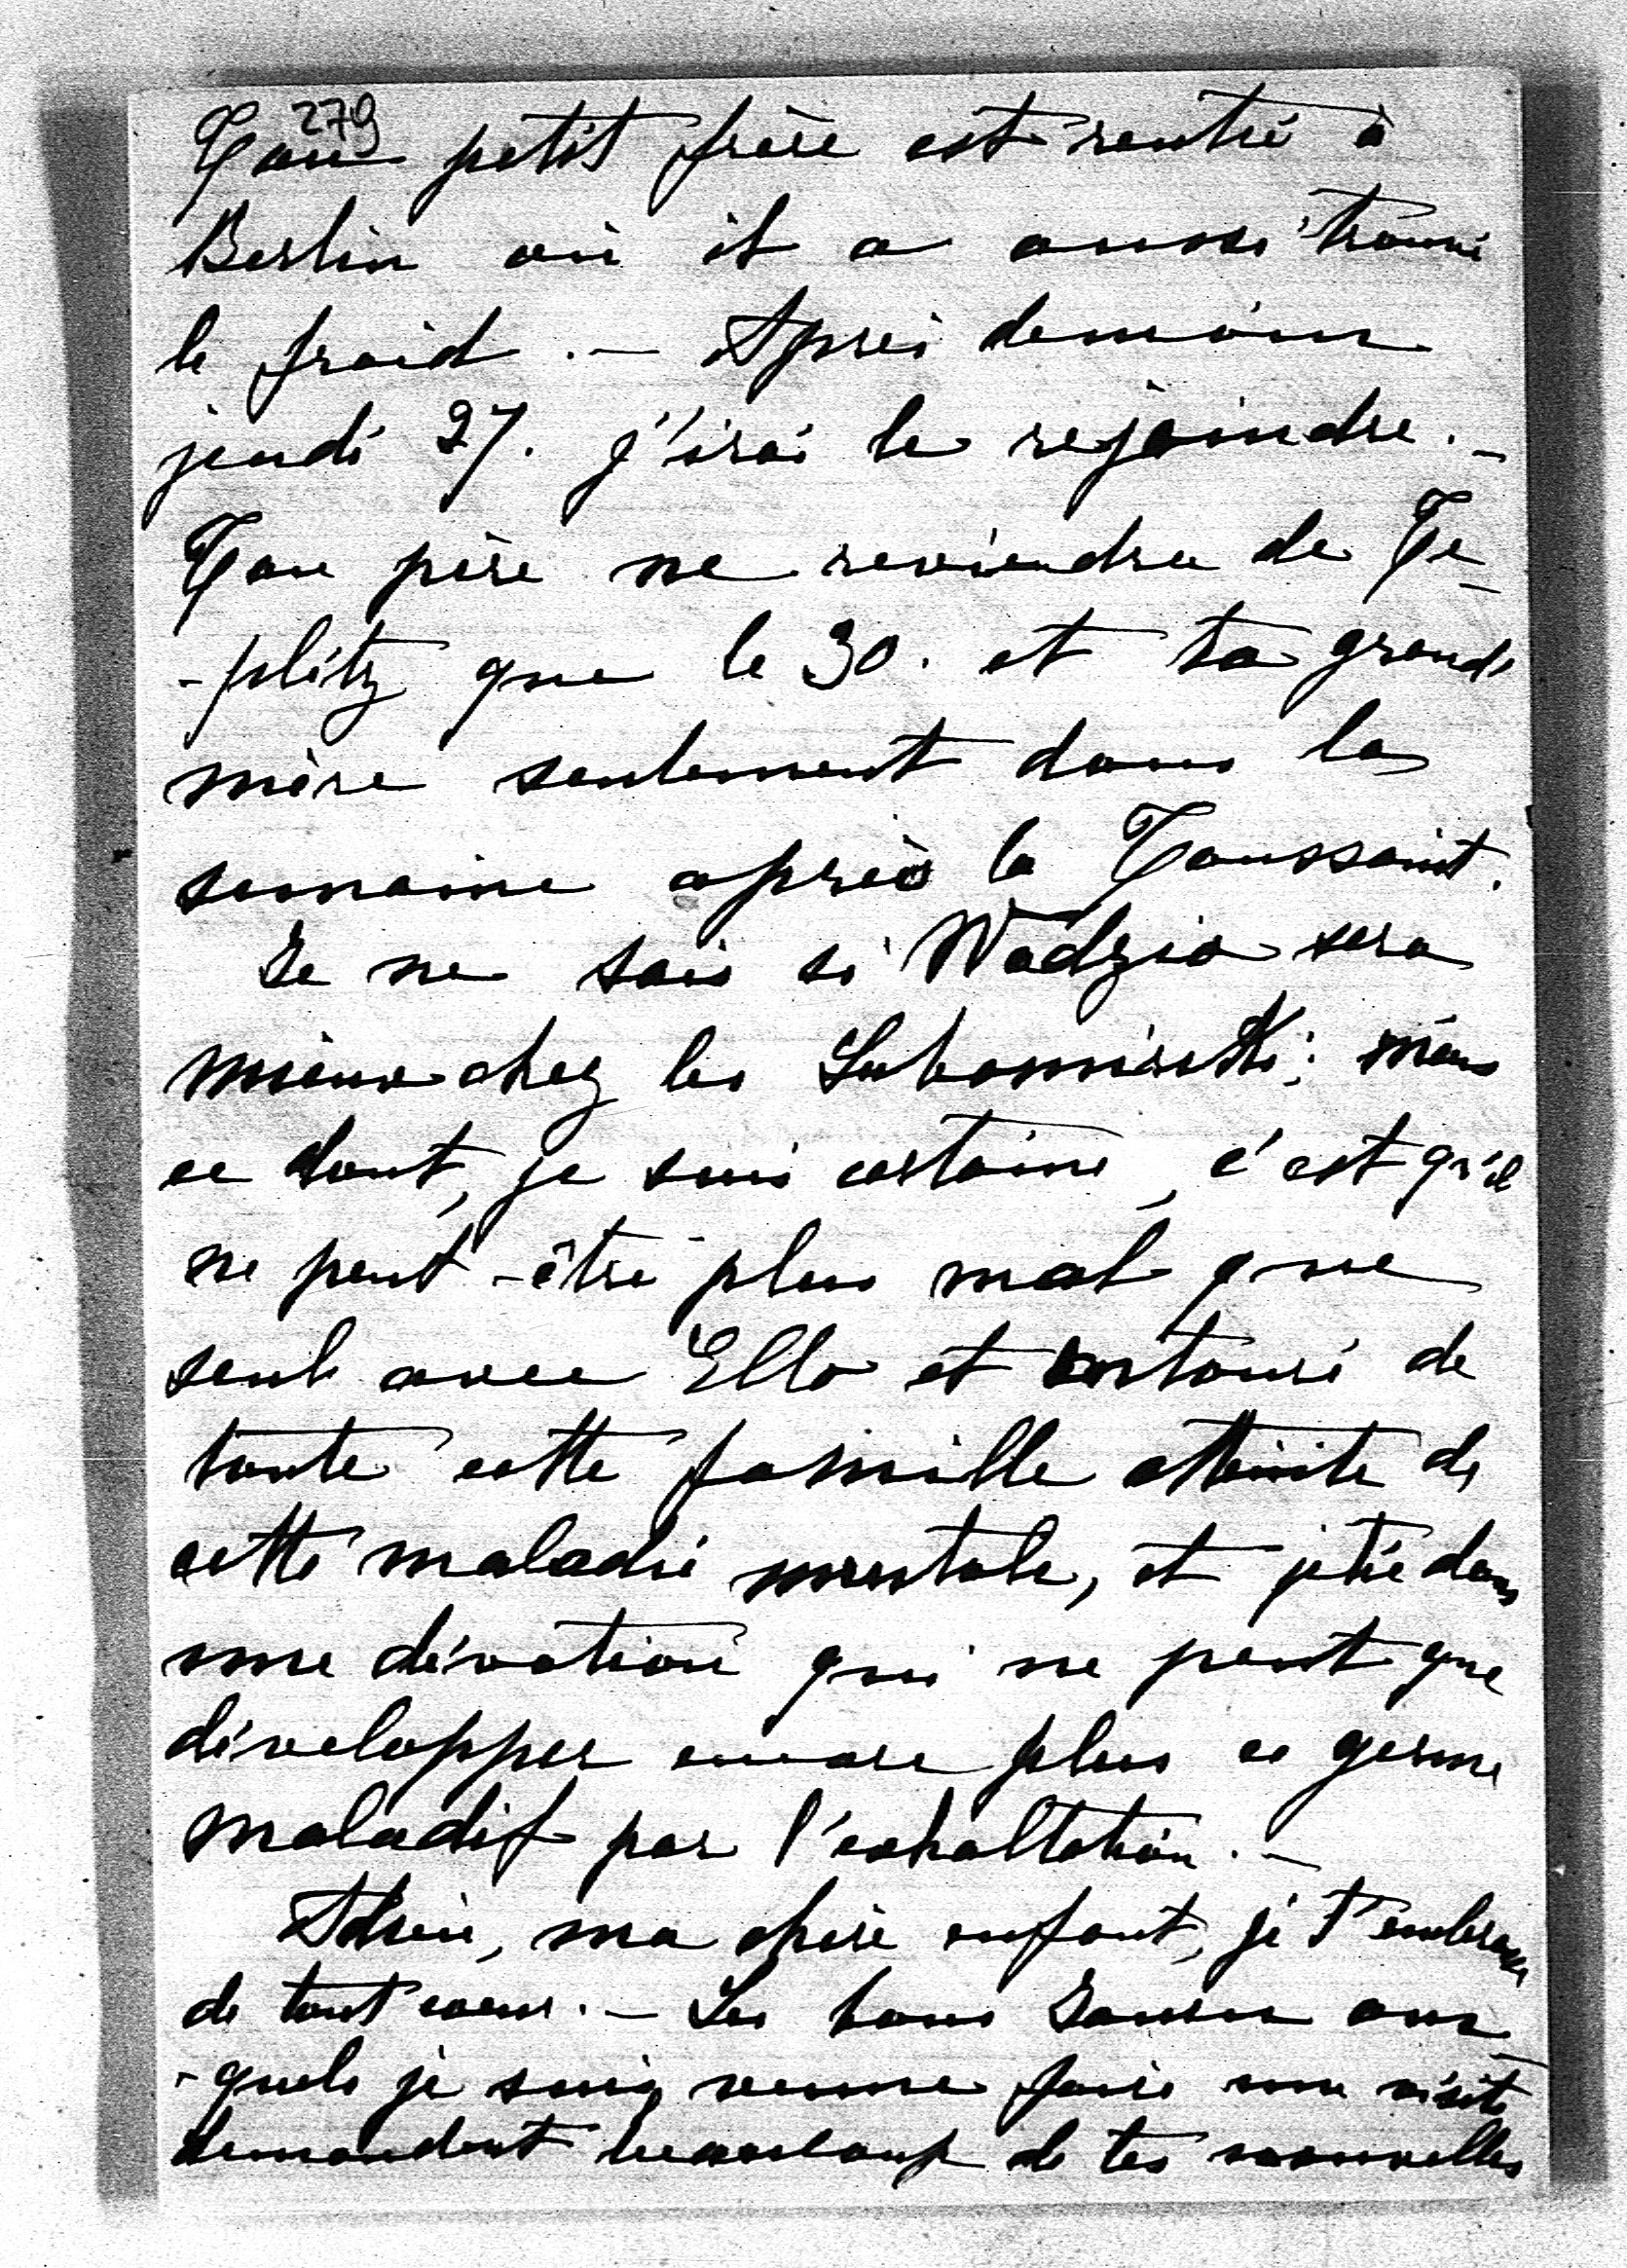 279
Ton petit frère est rentré à
Berlin où il a aussi trouvé
le froid. — Après demain
jeudi 27. j'irai le rejoindre. —
Ton père ne reviendra de Te-
-plitz que le 30. et ta grand'
mère seulement dans la
semaine après la Toussaint.
Je ne sais si Wadzio sera
mieux chez les Lubomirski; mais
ce dont, je suis certaine, c'est qu'il
ne peut-être plus mal que
seul avec Ella et entouré de
toute cette famille atteinte de
cette maladie mentale, et jetée dans
une dévotion qui ne peut que
développer encore plus ce germe
maladif par l'exhaltation. —
Adieu, ma chère enfant, je t'embrasse
de tout cœur. — Les bons aux-
-quels je suis venue faire une visite
demandent beaucoup de tes nouvelles